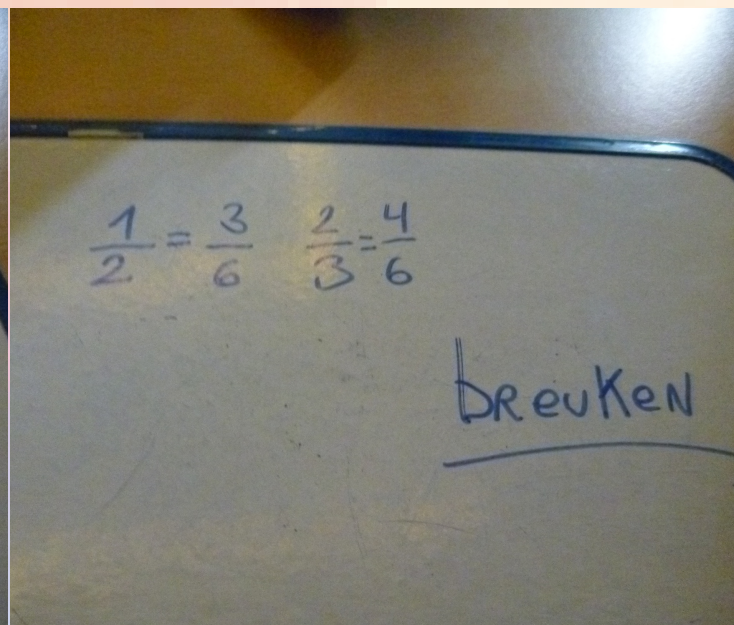 1/2 = 3/6 2/3 = 4/6
breuken